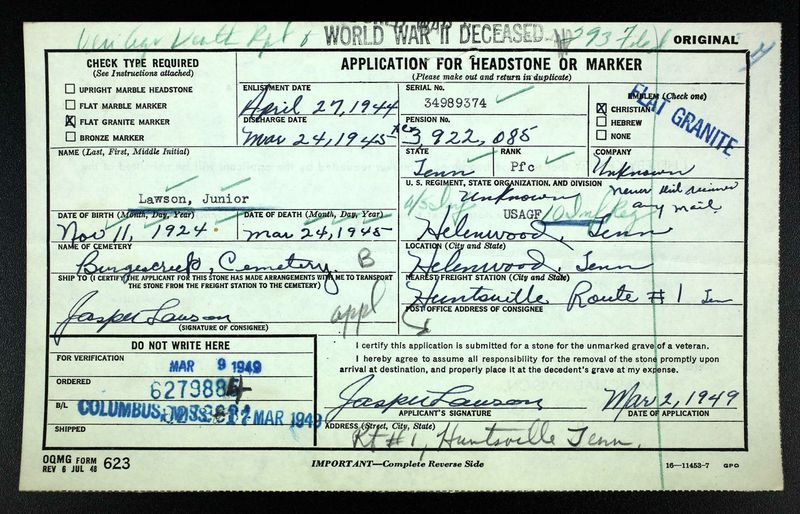 WORLD WAR II DECEASED
293 Filed
ORIGINAL
CHECK TYPE REQUIRED
(See Instructions attached)
UPRIGHT MARBLE HEADSTONE
FLAT MARBLE MARKER
X FLAT GRANITE MARKER
BRONZE MARKER
APPLICATION FOR HEADSTONE OR MARKER
(Please make out and return in duplicate)
ENLISTMENT DATE
April 27, 1944
DISCHARGE DATE
Mar 24, 1945
SERIAL No.
34989374
PENSION No.
3 922,085
EMBLEM (Check one)
X CHRISTIAN
HEBREW
NONE
FLAT GRANITE
STATE
Tenn
RANK
Pfc
COMPANY
Unknown
NAME (Last, First, Middle Initial)
Lawson, Junior
U. S. REGIMENT, STATE ORGANIZATION, AND DIVISION
Unknown
any mail
USAGF
DATE OF BIRTH (Month, Day, Year)
Nov 11, 1924
DATE OF DEATH (Month, Day, Year)
Mar 24, 1945
Helenwood, Tenn
NAME OF CEMETERY
Cemetery B
LOCATION (City and State)
Helenwood, Tenn
SHIP TO (I CERTIFY THE APPLICANT FOR THIS STONE HAS MADE ARRANGEMENTS WITH ME TO TRANSPORT
THE STONE FROM THE FREIGHT STATION TO THE CEMETERY)
NEAREST FREIGHT STATION (City and State)
Huntsville Route #1 Tenn
Jasper Lawson
(SIGNATURE OF CONSIGNEE)
appl
POST OFFICE ADDRESS OF CONSIGNEE
DO NOT WRITE HERE
FOR VERIFICATION
MAR 9 1949
ORDERED
627988
B/L
COLUMBUS, MISS.
MAR 1949
SHIPPED
I certify this application is submitted for a stone for the unmarked grave of a veteran.
I hereby agree to assume all responsibility for the removal of the stone promptly upon
arrival at destination, and properly place it at the decedent's grave at my expense.
Jasper Lawson
Mar 2, 1949
APPLICANT'S SIGNATURE
DATE OF APPLICATION
ADDRESS (Street, City, State)
Rt #1, Huntsville Tenn.
OQMG FORM
REV 6 JUL 48 623
IMPORTANT—Complete Reverse Side
16—11453-7 GPO